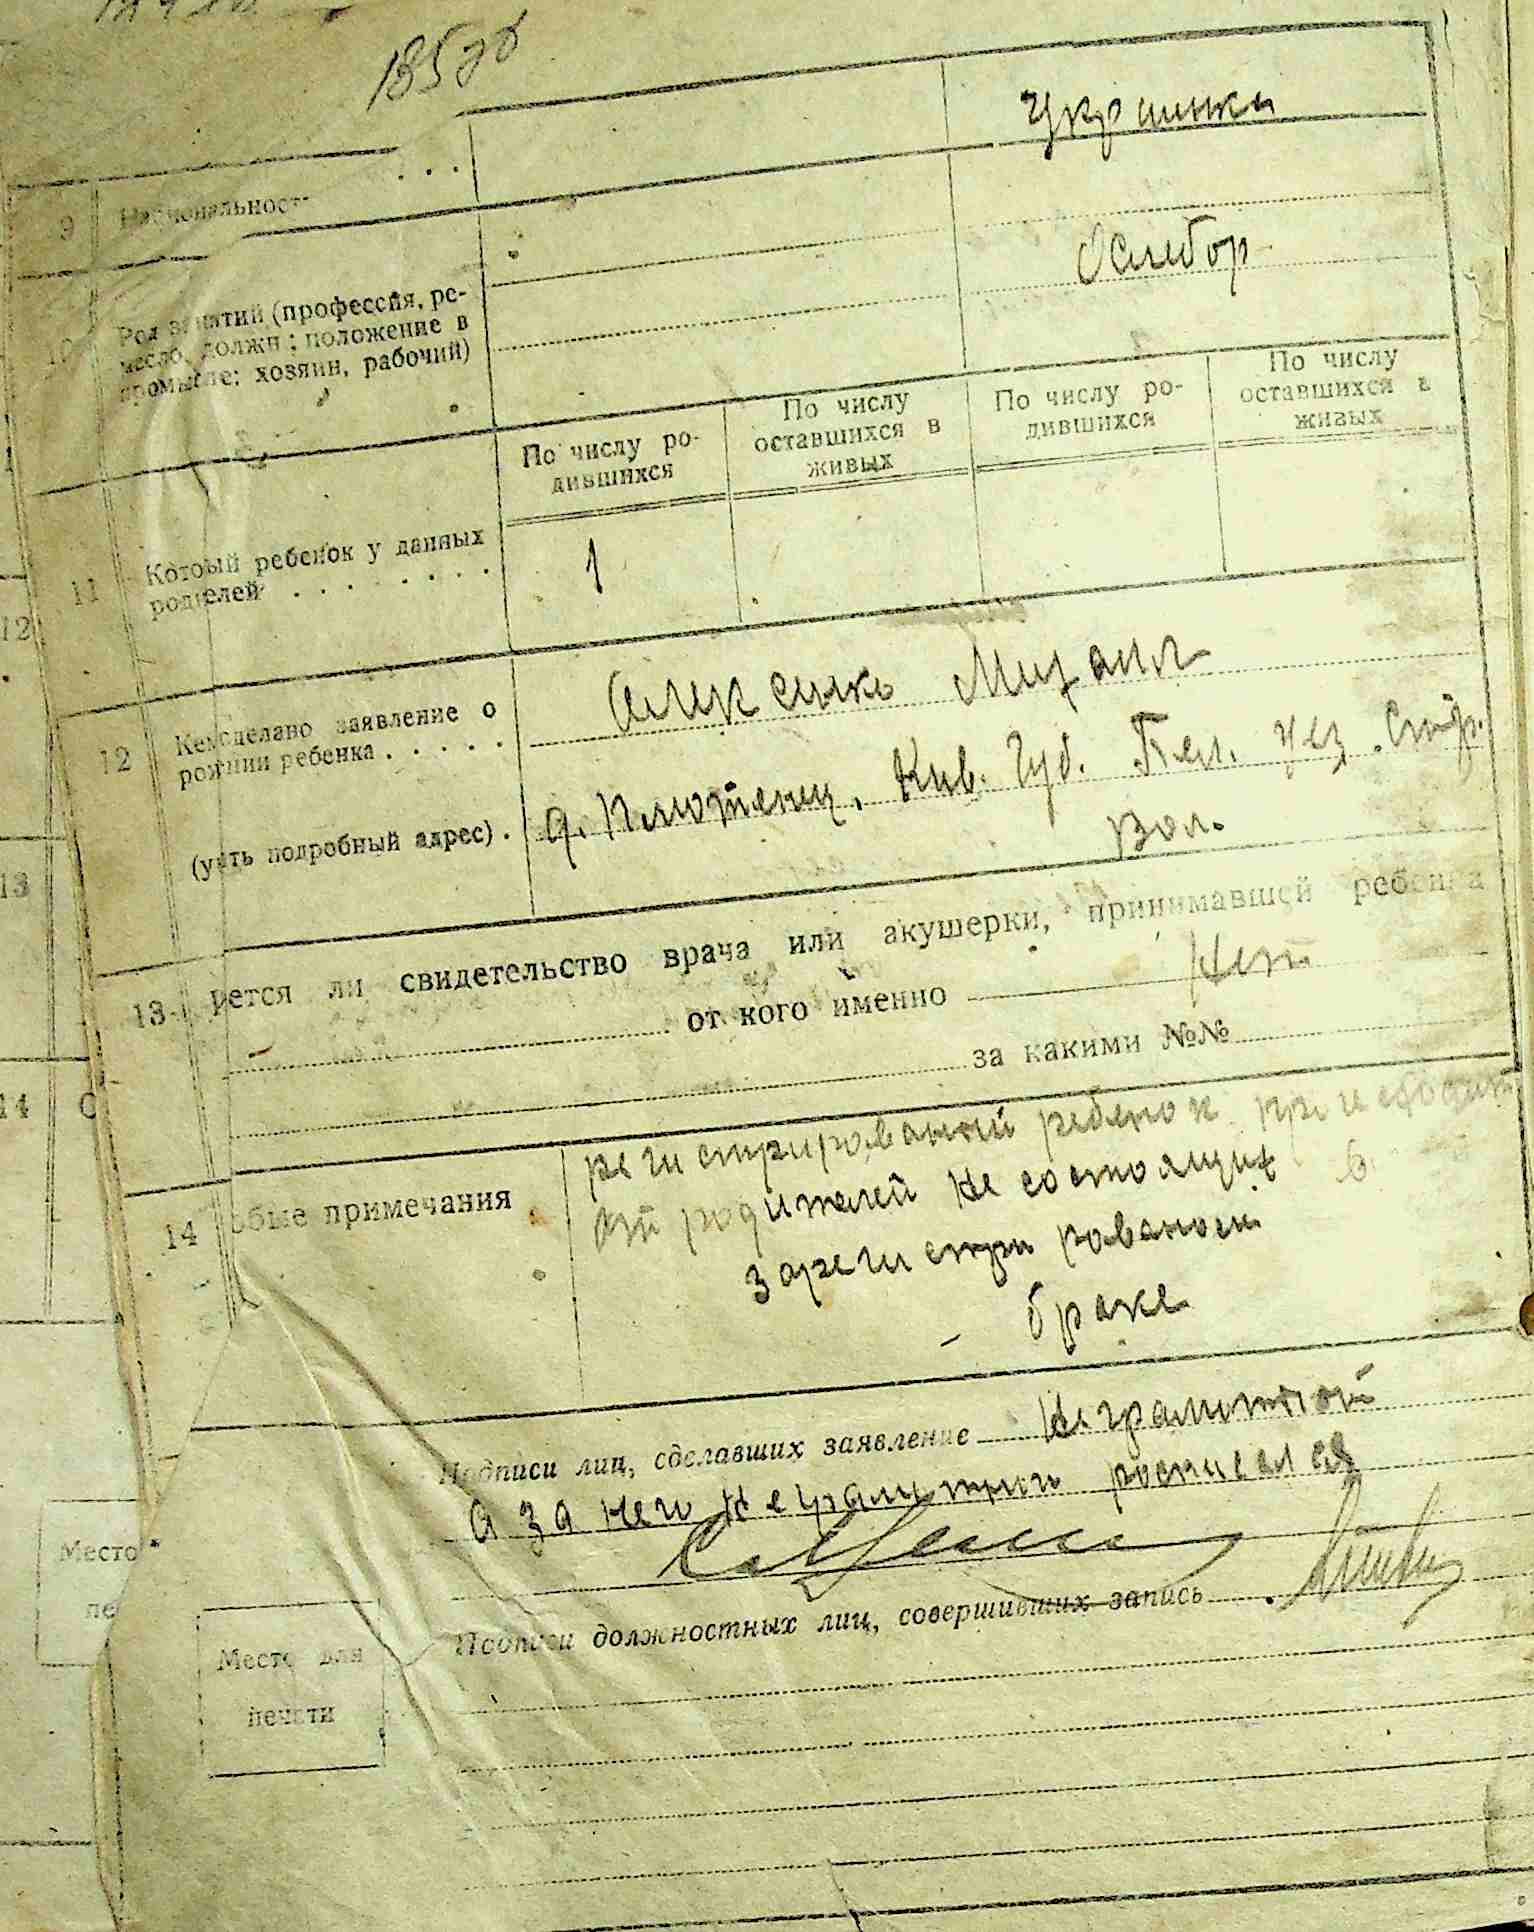 185 об
9 Национальность . . .
Украинка
10 Род занятий (профессия, ре-
месло, должн; положение в
промысле; хозяин, рабочий)
По числу ро-
дившихся
По числу
оставшихся в
живых
По числу ро-
дившихся
По числу
оставшихся в
живых
11 Который ребенок у данных
родителей . . . . . . .
1
12 Кем сделано заявление о
рождении ребенка . . . . .
Михаил
(ук ть подробный адрес) .
д. Кив. Губ. Бел. уез. Стр.
вол.
13 ется ли свидетельство врача или акушерки, принимавшей ребенка
от кого именно Нет
за какими №№
14 обые примечания
регистрированый ребенок происходит
от родителей не состоящих в
зарегистрированом
браке
Подписи лиц, сделавших заявление Неграмотной
а за него неграмотного росписался
Подписи должностных лиц, совершивших запись
Место для
печати
12
13
14 О
Место
пе